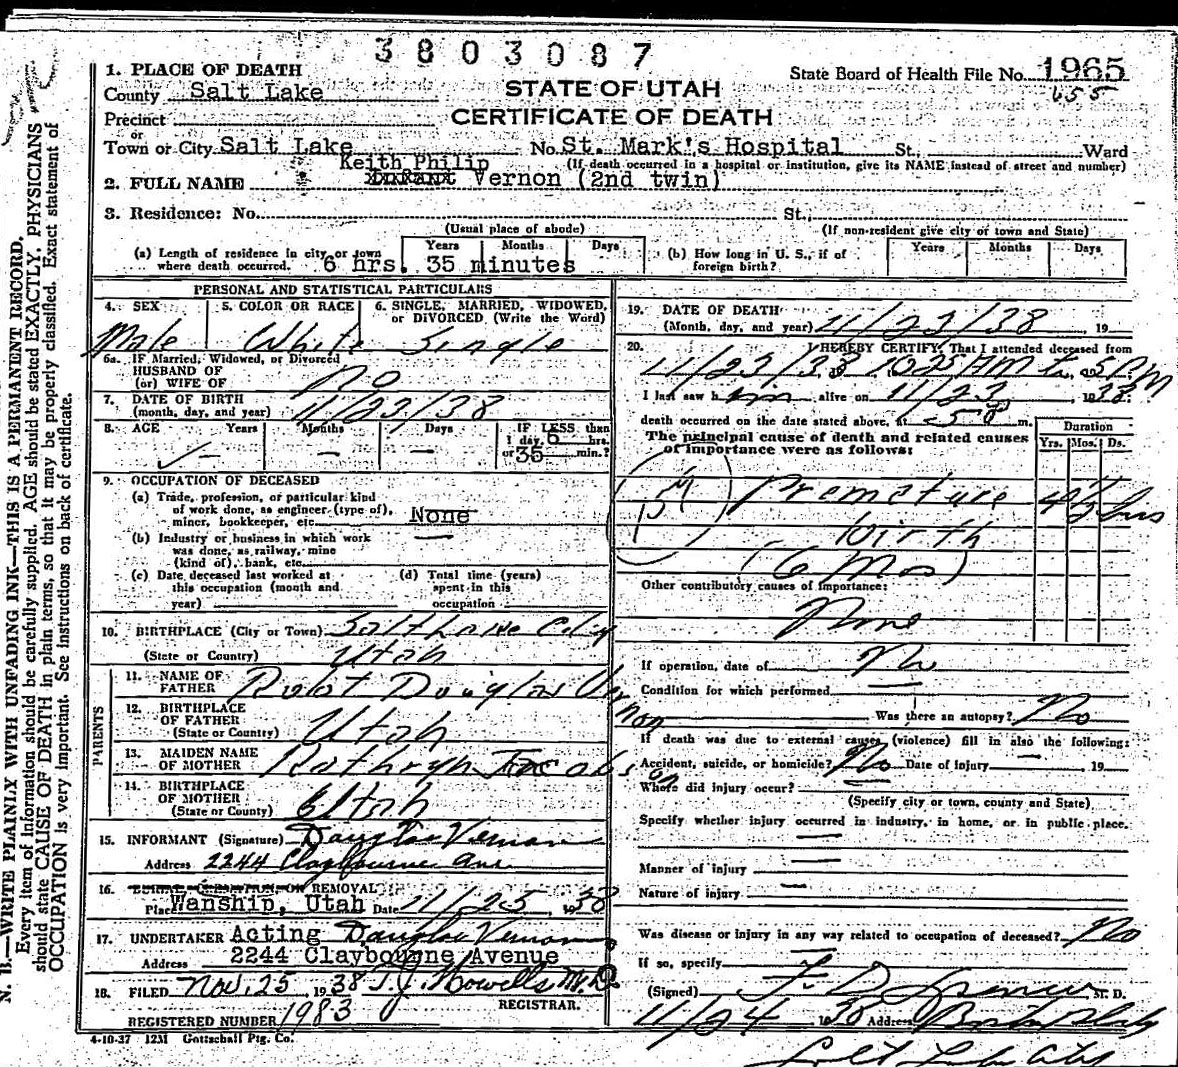 3803087
1. PLACE OF DEATH
State Board of Health File No. 1965
655
County Salt Lake
STATE OF UTAH
Precinct
CERTIFICATE OF DEATH
or
Town or City Salt Lake No. St. Mark's Hospital St. Ward
(If death occurred in a hospital or institution, give its NAME instead of street and number)
Keith Philip
2. FULL NAME Vernon (2nd twin)
3. Residence: No. St.,
(Usual place of abode) (If non-resident give city or town and State)
(a) Length of residence in city or town where death occurred. Years Months Days
6 hrs. 35 minutes
(b) How long in U. S., if of foreign birth? Years Months Days
PERSONAL AND STATISTICAL PARTICULARS
4. SEX 5. COLOR OR RACE 6. SINGLE, MARRIED, WIDOWED, or DIVORCED (Write the Word)
Male White Single
6a. IF Married, Widowed, or Divorced
HUSBAND OF
(or) WIFE OF no
7. DATE OF BIRTH
(month, day, and year) 11/23/38
8. AGE Years Months Days IF LESS than
1 day, 6 hrs.
or 35 min.?
9. OCCUPATION OF DECEASED
(a) Trade, profession, or particular kind
of work done, as engineer (type of),
miner, bookkeeper, etc. None
(b) Industry or business in which work
was done, as railway, mine
(kind of), bank, etc.
(c) Date deceased last worked at
this occupation (month and
year)
(d) Total time (years)
spent in this
occupation
10. BIRTHPLACE (City or Town) Salt Lake City
(State or Country) Utah
PARENTS
11. NAME OF
FATHER Robt Douglas Vernon
12. BIRTHPLACE
OF FATHER
(State or Country) Utah
13. MAIDEN NAME
OF MOTHER Kathryn Jacobson
14. BIRTHPLACE
OF MOTHER
(State or County) Utah
15. INFORMANT (Signature) Douglas Vernon
Address 2244 Claybourne Ave
16. BURIAL, CREMATION, OR REMOVAL
Place Wanship, Utah Date 11/25, 1938
17. UNDERTAKER Acting Douglas Vernon
Address 2244 Claybourne Avenue
18. FILED Nov. 25, 1938 T.J. Howells M.D.
REGISTRAR.
REGISTERED NUMBER 1983
4-10-37 12M Gottschall Ptg. Co.
19. DATE OF DEATH
(Month, day, and year) 11/23/38, 19
20. I HEREBY CERTIFY, That I attended deceased from
11/23/38 1025 AM to 5 PM
I last saw him alive on 11/23, 1938.
death occurred on the date stated above, at m.
The principal cause of death and related causes
of importance were as follows:
Duration
Yrs. Mos. Ds.
Premature
birth
(6 Mos)
hrs
Other contributory causes of importance:
None
If operation, date of No
Condition for which performed
Was there an autopsy? No
If death was due to external causes (violence) fill in also the following:
Accident, suicide, or homicide? No Date of injury 19
Where did injury occur?
(Specify city or town, county and State)
Specify whether injury occurred in industry, in home, or in public place.
Manner of injury
Nature of injury
Was disease or injury in any way related to occupation of deceased? No
If so, specify
(Signed) F. D. Spencer M. D.
11/24 1938 Address Boston Bldg
Salt Lake City
N. B.—WRITE PLAINLY WITH UNFADING INK—THIS IS A PERMANENT RECORD.
Every item of information should be carefully supplied. AGE should be stated EXACTLY. PHYSICIANS
should state CAUSE OF DEATH in plain terms, so that it may be properly classified. Exact statement of
OCCUPATION is very important. See instructions on back of certificate.